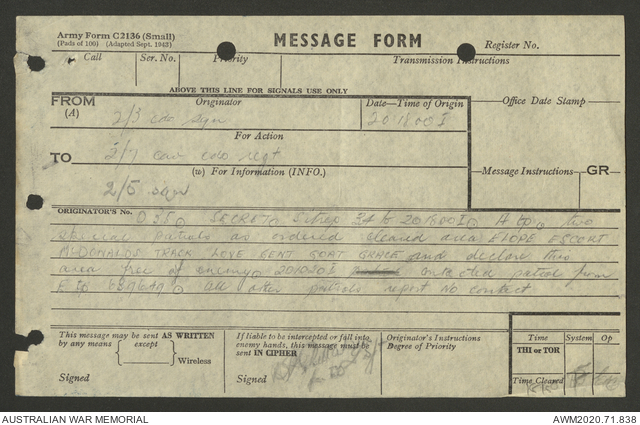 Army Form C2136 (Small)
(Pads of 100) (Adapted Sept. 1942)
MESSAGE FORM
Register No.
Call Ser. No. Priority Transmission Instructions
ABOVE THIS LINE FOR SIGNALS USE ONLY
FROM Originator Date—Time of Origin Office Date Stamp
(A) 2/3 cdo sqn 201800 I
For Action
TO 2/7 cav cdo regt
(w) For Information (INFO.) Message Instructions GR
2/5 sqn
ORIGINATOR'S No. O 35. SECRET. Sitrep 34 to 201800I. A tp. two
special patrols as ordered cleared area ELOPE ESCORT
McDONALDS TRACK LOVE GENT GOAT GRACE and declare this
area free of enemy. 201030I contacted patrol from
tp. all other patrols report no contact.
This message may be sent AS WRITTEN
by any means except
Wireless
Signed
If liable to be intercepted or fall into
enemy hands, this message must be
sent IN CIPHER
Signed
Originator's Instructions
Degree of Priority
Time System Op
THI or TOR
Time Cleared
AUSTRALIAN WAR MEMORIAL AWM2020.71.838